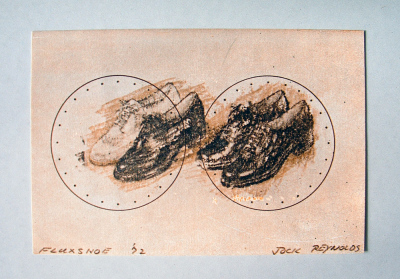 FLUXSHOE '72 JOCK REYNOLDS